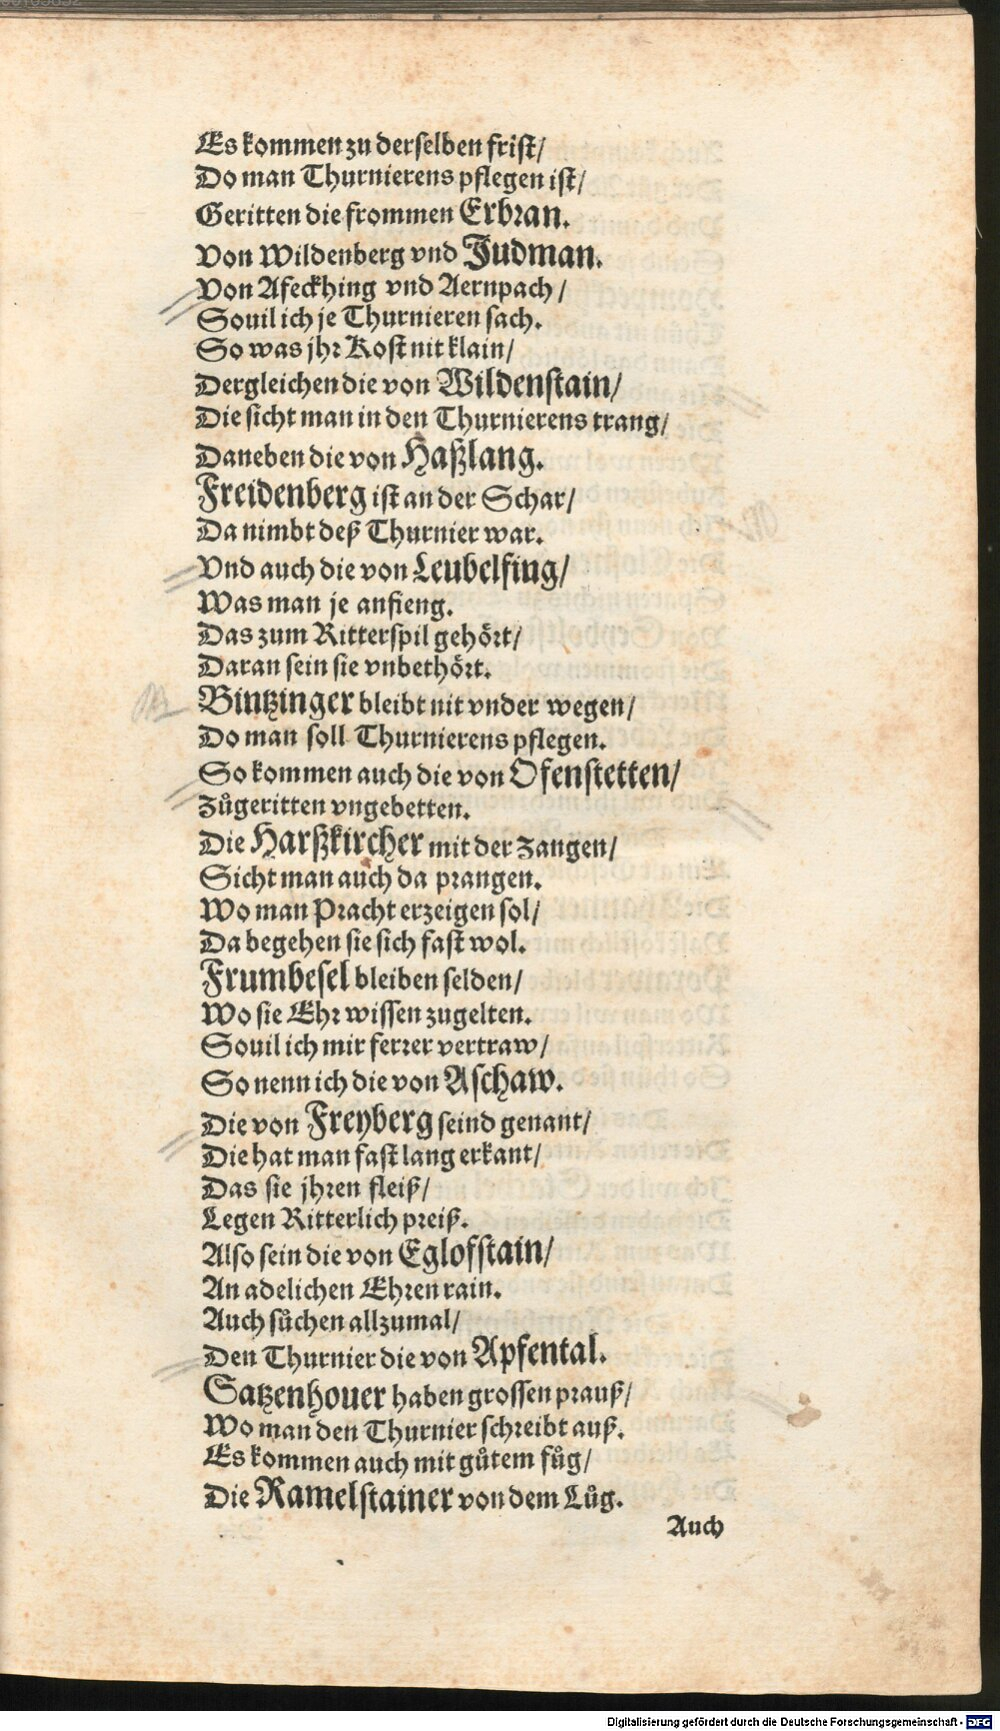 Es kommen zu derselben frist/
Do man Thurnierens pflegen ist/
Geritten die frommen Erbran.
Von Wildenberg vnd Judman.
Von Afeckhing vnd Aernpach/
Souil ich je Thurnieren sach.
So was jhr Kost nit klain/
Dergleichen die von Wildenstain/
Die sicht man in den Thurnierens trang/
Daneben die von Haßlang.
Freidenberg ist an der Schar/
Da nimbt deß Thurnier war.
Vnd auch die von Leubelfing/
Was man je anfieng.
Das zum Ritterspil gehört/
Daran sein sie vnbethört.
Bintzinger bleibt nit vnder wegen/
Do man soll Thurnierens pflegen.
So kommen auch die von Ofenstetten/
Zůgeritten vngebetten.
Die Harßkircher mit der Zangen/
Sicht man auch da prangen.
Wo man Pracht erzeigen sol/
Da begehen sie sich fast wol.
Frumbesel bleiben selden/
Wo sie Ehr wissen zugelten.
Souil ich mir ferrer vertraw/
So nenn ich die von Aschaw.
Die von Freyberg seind genant/
Die hat man fast lang erkant/
Das sie jhren fleiß/
Legen Ritterlich preiß.
Also sein die von Eglofstain/
An adelichen Ehren rain.
Auch sůchen allzumal/
Den Thurnier die von Apfental.
Satzenhouer haben grossen prauß/
Wo man den Thurnier schreibt auß.
Es kommen auch mit gůtem fůg/
Die Ramelstainer von dem Lůg.
Auch
Digitalisierung gefördert durch die Deutsche Forschungsgemeinschaft - DFG